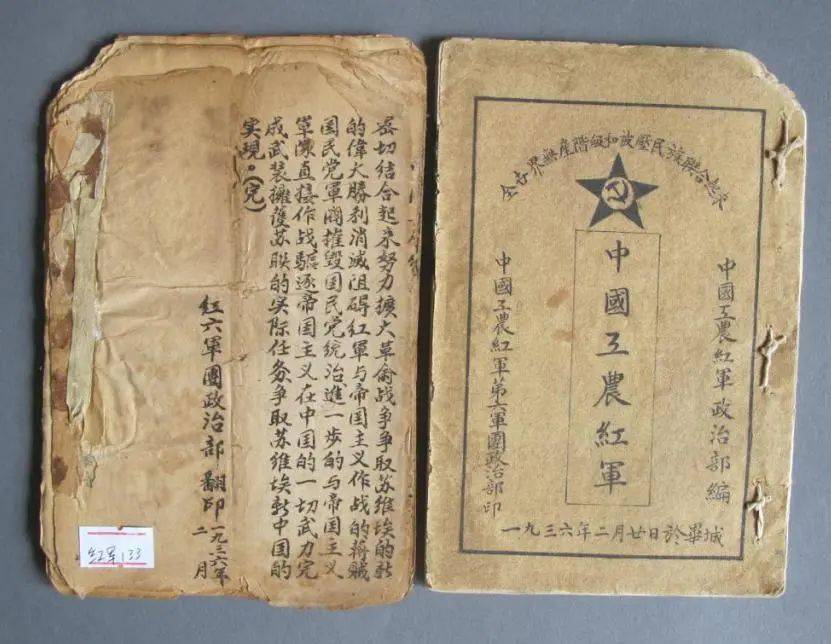 密切结合起来努力擴大革命战争争取苏维埃的新
的偉大勝利消滅阻碍红軍与帝国主义作战的蒋贼
国民党軍閥摧毁国民党统治進一步的与帝国主义
軍隊直接作战驅逐帝国主义在中国的一切武力完
成武装擁護苏联的实际任务争取苏维埃新中国的
实现。(完)
红六軍團政治部 翻印
一九三六年
二月
红军133
全世界無產階級和被壓民族聯合起來
中國工農紅軍政治部編
中國工農紅軍
中國工農紅軍第六軍團政治部印
一九三六年二月廿日於畢城